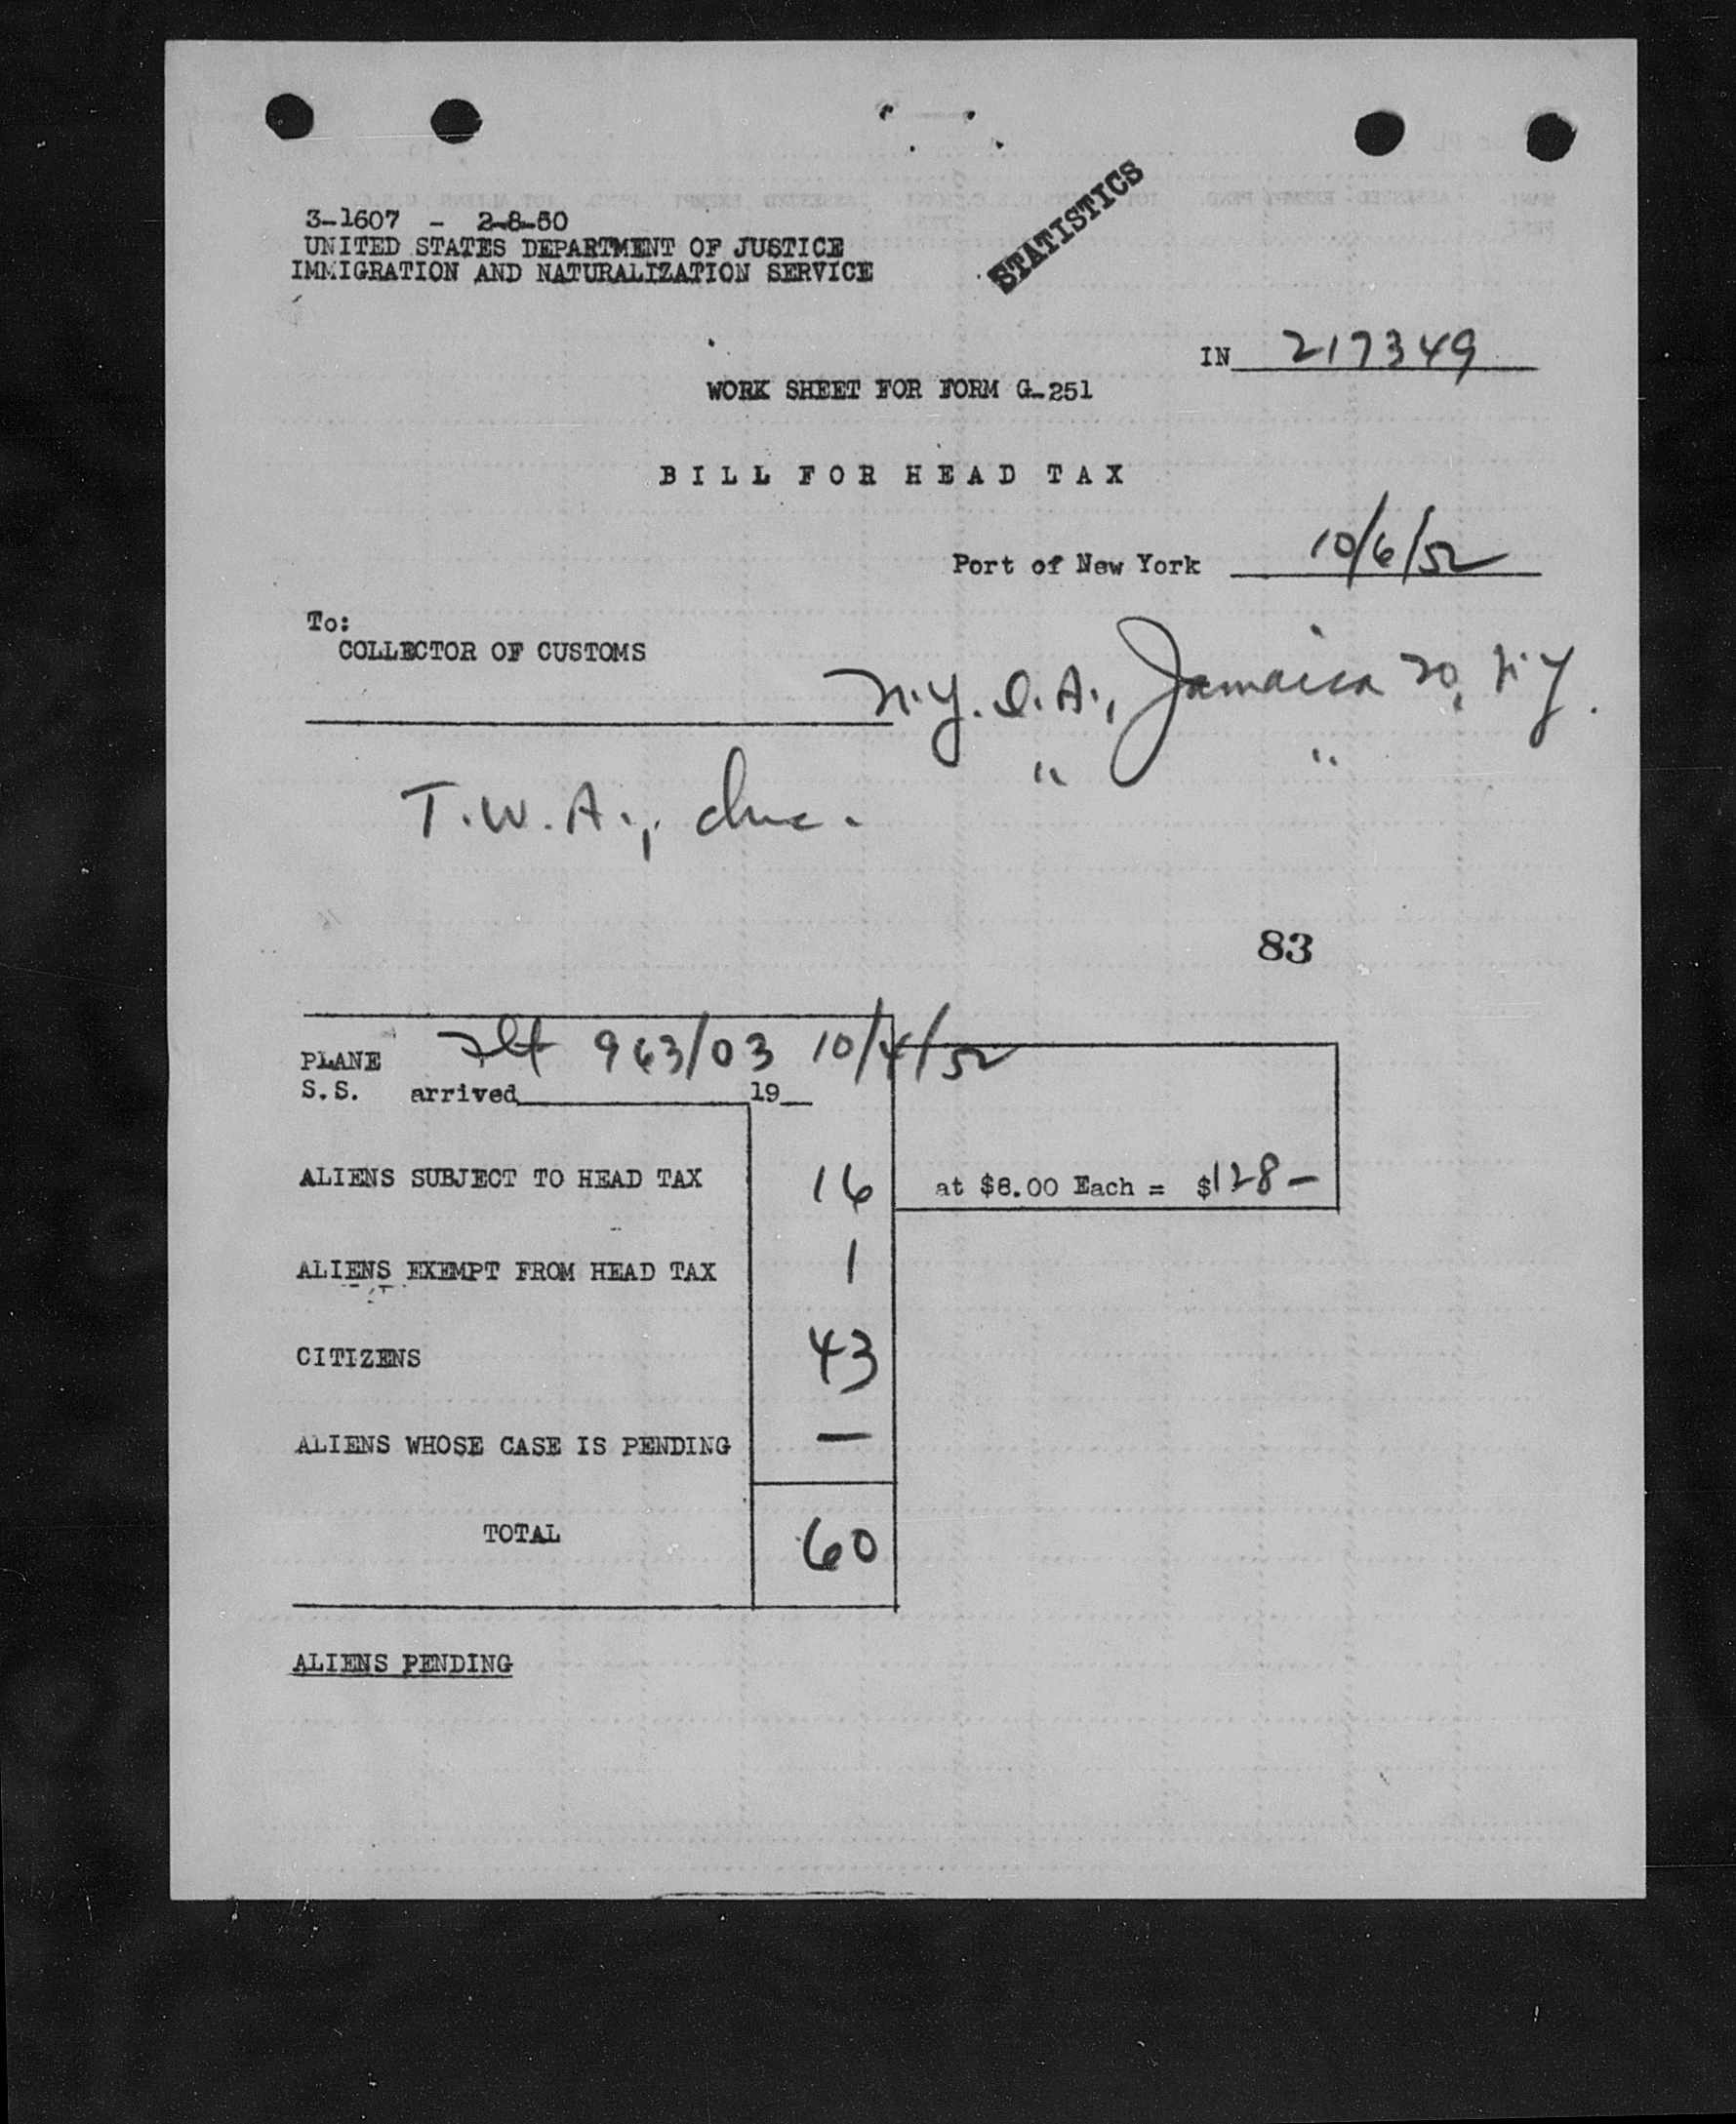 STATISTICS
3-1607 - 2-8-50
UNITED STATES DEPARTMENT OF JUSTICE
IMMIGRATION AND NATURALIZATION SERVICE
IN 217349
WORK SHEET FOR FORM G-251
BILL FOR HEAD TAX
Port of New York 10/6/52
To:
COLLECTOR OF CUSTOMS
N.Y. I.A., Jamaica 20, N.Y.
T.W.A., Inc. " "
83
PLANE Flt 963/03 10/4/52
S.S. arrived 19
ALIENS SUBJECT TO HEAD TAX 16 at $8.00 Each = $128-
ALIENS EXEMPT FROM HEAD TAX 1
CITIZENS 43
ALIENS WHOSE CASE IS PENDING —
TOTAL 60
ALIENS PENDING